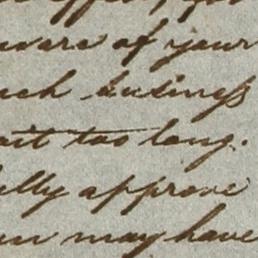 aware of your
such business
wait too long.
fully approve
you may have